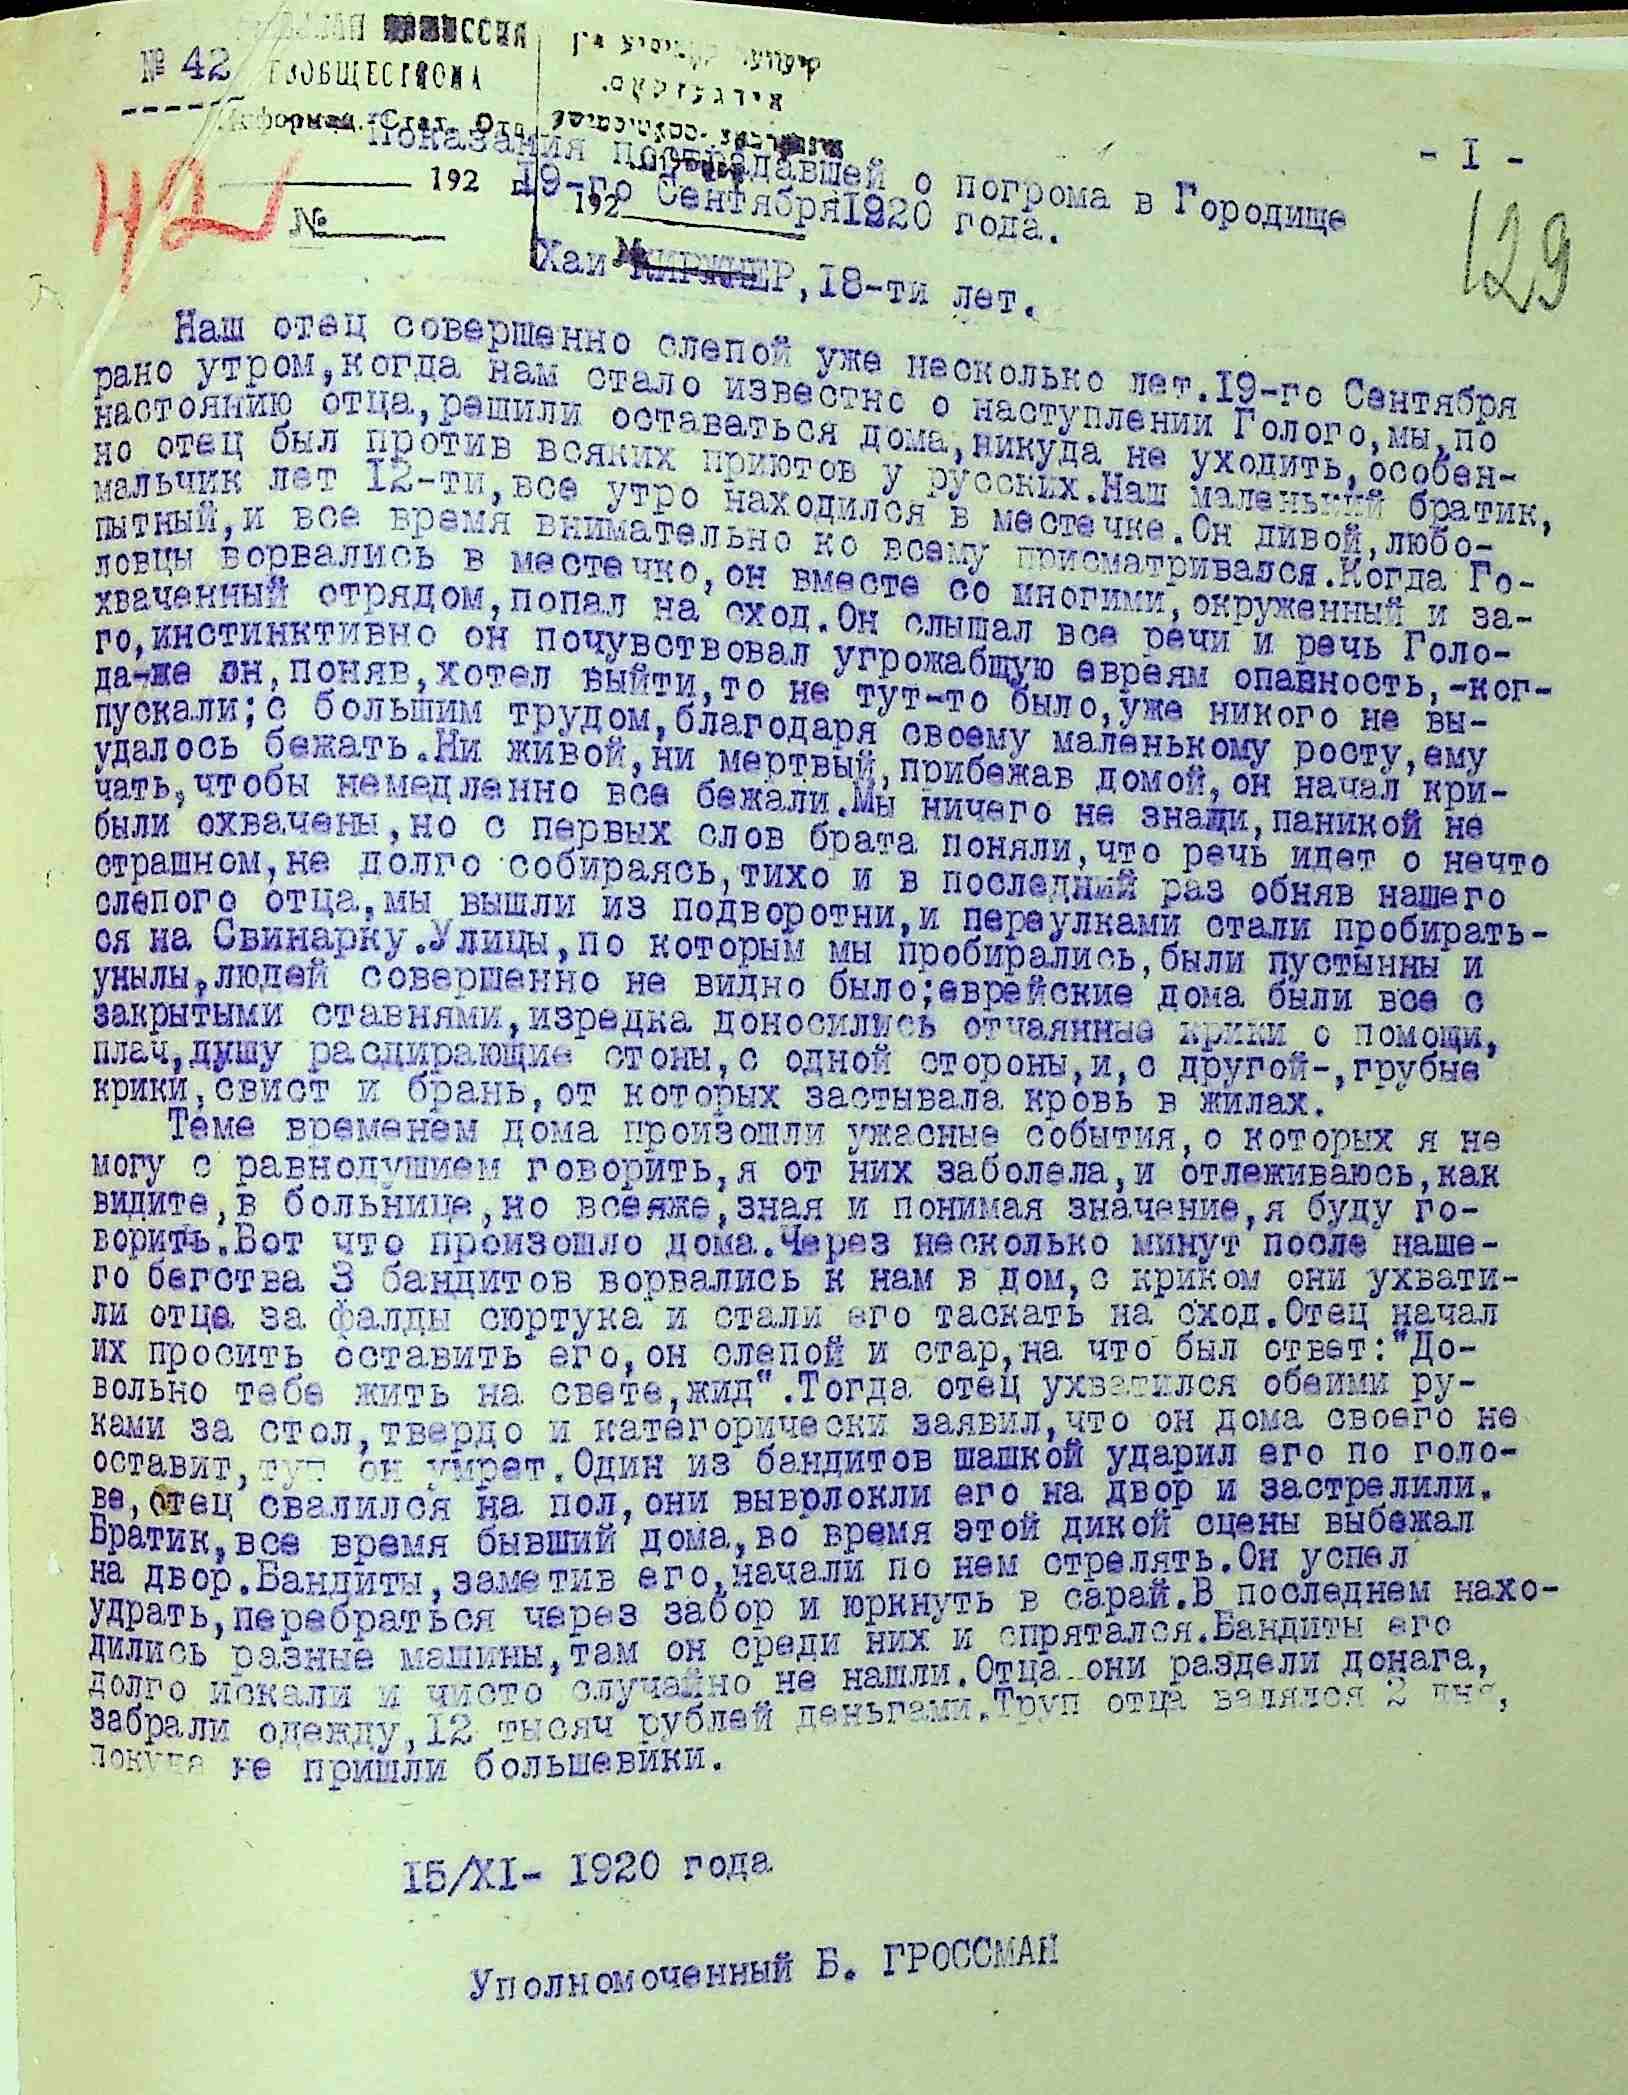 № 42
КОМИССИЯ
ОБЩЕСТКОМА
Информац. Стат. Отд.
42
192 г.
№
192
- I -
129
Показания пострадавшей о погрома в Городище
19-го Сентября 1920 года.
Хаи М КИРЖНЕР, 18-ти лет.
Наш отец совершенно слепой уже несколько лет. 19-го Сентября
рано утром, когда нам стало известно о наступлении Голого, мы, по
настоянию отца, решили оставаться дома, никуда не уходить, особен-
но отец был против всяких приютов у русских. Наш маленький братик,
мальчик лет 12-ти, все утро находился в местечке. Он дивой, любо-
пытный, и все время внимательно ко всему присматривался. Когда Го-
ловцы ворвались в местечко, он вместе со многими, окруженный и за-
хваченный отрядом, попал на сход. Он слышал все речи и речь Голо-
го, инстинктивно он почувствовал угрожабщую евреям опавность, -ког-
да-же он, поняв, хотел выйти, то не тут-то было, уже никого не вы-
пускали; с большим трудом, благодаря своему маленькому росту, ему
удалось бежать. Ни живой, ни мертвый, прибежав домой, он начал кри-
чать, чтобы немедленно все бежали. Мы ничего не знади, паникой не
были охвачены, но с первых слов брата поняли, что речь идет о нечто
страшном, не долго собираясь, тихо и в последний раз обняв нашего
слепого отца, мы вышли из подворотни, и переулками стали пробирать-
ся на Свинарку. Улицы, по которым мы пробирались, были пустынны и
унылы, людей совершенно не видно было; еврейские дома были все с
закрытыми ставнями, изредка доносились отчаянные крики о помощи,
плач, душу расдирающие стоны, с одной стороны, и, с другой-, грубые
крики, свист и брань, от которых застывала кровь в жилах.
Теме временем дома произошли ужасные события, о которых я не
могу с равнодушием говорить, я от них заболела, и отлеживаюсь, как
видите, в больнице, но всеяже, зная и понимая значение, я буду го-
ворить. Вот что произошло дома. Через несколько минут после наше-
го бегства 3 бандитов ворвались к нам в дом, с криком они ухвати-
ли отца за фалды сюртука и стали его таскать на сход. Отец начал
их просить оставить его, он слепой и стар, на что был ответ: "До-
вольно тебе жить на свете, жид". Тогда отец ухватился обеими ру-
ками за стол, твердо и категорически заявил, что он дома своего не
оставит, тут он умрет. Один из бандитов шашкой ударил его по голо-
ве, отец свалился на пол, они выврлокли его на двор и застрелили.
Братик, все время бывший дома, во время этой дикой сцены выбежал
на двор. Бандиты, заметив его, начали по нем стрелять. Он успел
удрать, перебраться через забор и юркнуть в сарай. В последнем нахо-
дились разные машины, там он среди них и спрятался. Бандиты его
долго искали и чисто случайно не нашли. Отца они раздели донага,
забрали одежду, 12 тысяч рублей деньгами. Труп отца валялся 2 дня,
покуда не пришли большевики.
15/XI- 1920 года
Уполномоченный Б. ГРОССМАН